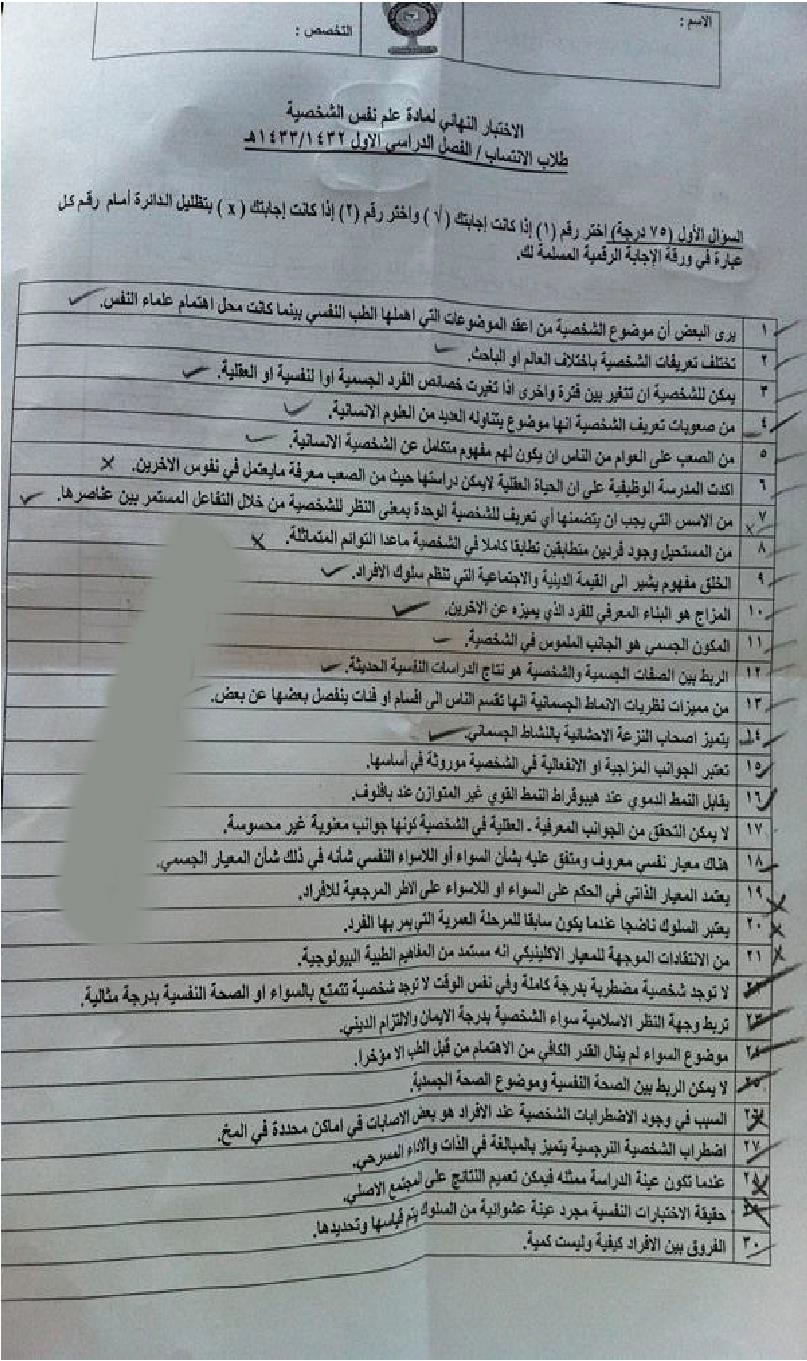 الاسم :
التخصص :
الاختبار النهائي لمادة علم نفس الشخصية
طلاب الانتساب / الفصل الدراسي الاول ١٤٣٣/١٤٣٢هـ
السؤال الأول (٧٥ درجة) اختر رقم (١) إذا كانت إجابتك (√) واختر رقم (٢) إذا كانت إجابتك (x) بتظليل الدائرة أمام رقم كل
عبارة في ورقة الإجابة الرقمية المسلمة لك.
١ يرى البعض أن موضوع الشخصية من اعقد الموضوعات التي اهملها الطب النفسي بينما كانت محل اهتمام علماء النفس. ✓
٢ تختلف تعريفات الشخصية باختلاف العالم او الباحث. ✓
٣ يمكن للشخصية ان تتغير بين فترة واخرى اذا تغيرت خصائص الفرد الجسمية اوا لنفسية او العقلية. ✓
٤ من صعوبات تعريف الشخصية انها موضوع يتناوله العديد من العلوم الانسانية. ✓
٥ من الصعب على العوام من الناس ان يكون لهم مفهوم متكامل عن الشخصية الانسانية. ✓
٦ اكدت المدرسة الوظيفية على ان الحياة العقلية لايمكن دراستها حيث من الصعب معرفة مايعتمل في نفوس الاخرين. ×
٧ من الاسس التي يجب ان يتضمنها أي تعريف للشخصية الوحدة بمعنى النظر للشخصية من خلال التفاعل المستمر بين عناصرها. ✓
٨ من المستحيل وجود فردين متطابقين تطابقا كاملا في الشخصية ماعدا التوائم المتماثلة. ×
٩ الخلق مفهوم يشير الى القيمة الدينية والاجتماعية التي تنظم سلوك الافراد. ✓
١٠ المزاج هو البناء المعرفي للفرد الذي يميزه عن الاخرين. ✓
١١ المكون الجسمي هو الجانب الملموس في الشخصية. ✓
١٢ الربط بين الصفات الجسمية والشخصية هو نتاج الدراسات النفسية الحديثة. ✓
١٣ من مميزات نظريات الانماط الجسمانية انها تقسم الناس الى اقسام او فئات ينفصل بعضها عن بعض.
١٤ يتميز اصحاب النزعة الاحشائية بالنشاط الجسماني. ✓
١٥ تعتبر الجوانب المزاجية او الانفعالية في الشخصية موروثة في أساسها.
١٦ يقابل النمط الدموي عند هيبوقراط النمط القوي غير المتوازن عند بافلوف.
١٧ لا يمكن التحقق من الجوانب المعرفية ـ العقلية في الشخصية كونها جوانب معنوية غير محسوسة.
١٨ هناك معيار نفسي معروف ومتفق عليه بشأن السواء أو اللاسواء النفسي شأنه في ذلك شأن المعيار الجسمي.
١٩ يعتمد المعيار الذاتي في الحكم على السواء او اللاسواء على الاطر المرجعية للافراد.
٢٠ يعتبر السلوك ناضجا عندما يكون سابقا للمرحلة العمرية التي يمر بها الفرد.
٢١ من الانتقادات الموجهة للمعيار الاكلينيكي انه مستمد من المفاهيم الطبية البيولوجية.
٢٢ لا توجد شخصية مضطربة بدرجة كاملة وفي نفس الوقت لا توجد شخصية تتمتع بالسواء او الصحة النفسية بدرجة مثالية.
٢٣ تربط وجهة النظر الاسلامية سواء الشخصية بدرجة الايمان والالتزام الديني.
٢٤ موضوع السواء لم ينال القدر الكافي من الاهتمام من قبل الطب الا مؤخرا.
٢٥ لا يمكن الربط بين الصحة النفسية وموضوع الصحة الجسدية.
٢٦ السبب في وجود الاضطرابات الشخصية عند الافراد هو بعض الاصابات في اماكن محددة في المخ.
٢٧ اضطراب الشخصية النرجسية يتميز بالمبالغة في الذات والاداء المسرحي.
٢٨ عندما تكون عينة الدراسة ممثله فيمكن تعميم النتائج على المجتمع الاصلي.
٢٩ حقيقة الاختبارات النفسية مجرد عينة عشوائية من السلوك يتم قياسها وتحديدها.
٣٠ الفروق بين الافراد كيفية وليست كمية.